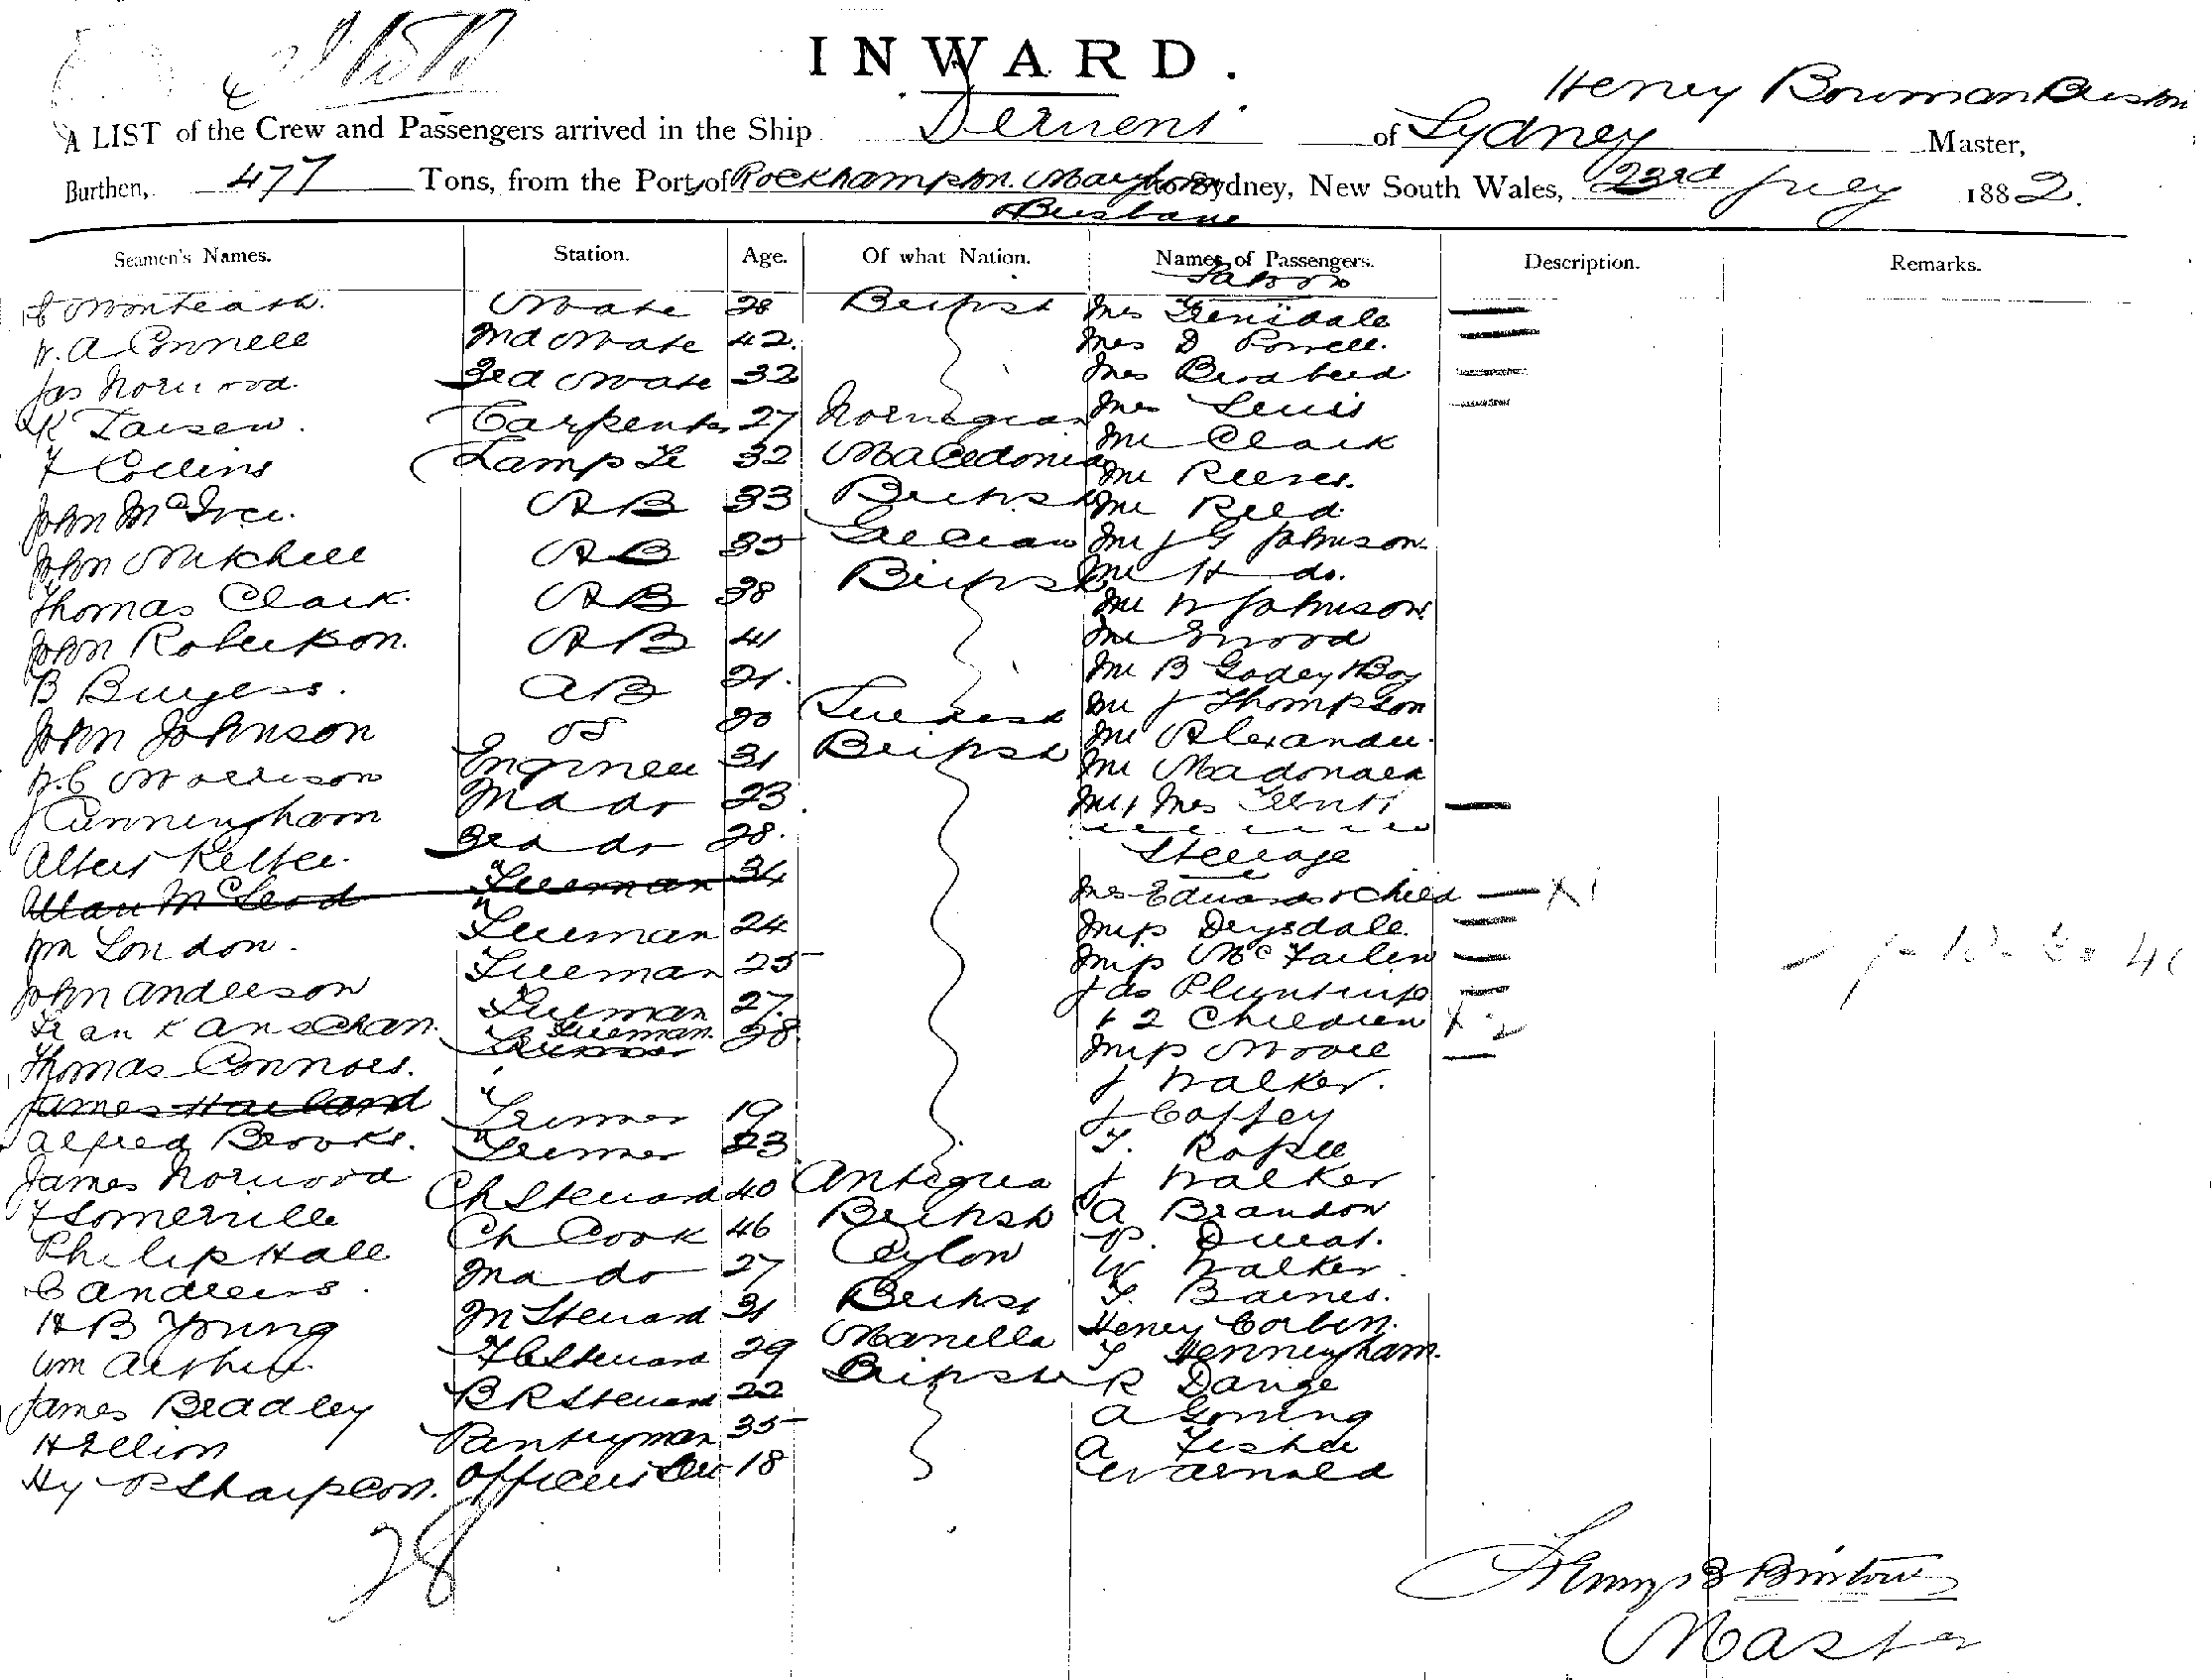 INWARD.
Henry Bowman Burton
A LIST of the Crew and Passengers arrived in the Ship Derwent of Sydney Master,
Burthen, 477 Tons, from the Port of Rockhampton. Maryboro to Sydney, New South Wales, 23rd July 1882.
& Brisbane
Seamen's Names. Station. Age. Of what Nation. Names of Passengers. Description. Remarks.
Saloon
Monteath. Mate 28 British Mrs
W. A. Connell 2nd Mate 42. Mrs D Powell.
Jas Norwood. 3rd Mate 32 Mrs Birdbird
K Larsen. Carpenter 27 Norwegian Mrs Lewis
F Collins Lamp Tr 32 Macedonia Mr Clark
John McIver. AB 33 British Mr Reeves.
John Mitchell AB 35 Grecian Mr Reed
Thomas Clark. AB 38 British Mr J G Johnson.
John Robertson. AB 41 Mr H do.
B Burgess. AB 21. Mr W Johnson.
John Johnson OS 20 Swedish Mr Wood
W. C Morrison Engineer 31 British Mr B Godey & Boy
J Cunningham 2nd do 23 Mr J Thompson
Albert Kelter. 3rd do 28. Mr Alexander.
Allan McLeod Fireman 34 Mr Madonald
Wm London. Fireman 24 Mr & Mrs
John Anderson Fireman 25 Steerage
Frank Anschan. Fireman 27. Mrs Edwards & Child X 1
Thomas Connors. Fireman 28. Miss Drysdale
James Harland Trimmer 19 Miss McFarlin
Alfred Brooks. Trimmer 23 Jas
James Norwood Ch Steward 40 Antigua & 2 Children X 2
F Somerville Ch Cook 46 British Miss Moore
Philip Hall 2nd do 27 Ceylon J Walker.
C Andrews. M Steward 31 British J Coffey
H B Young F C Steward 29 Manilla T. Roper
Wm Arthur. B R Steward 22 British J Walker
James Bradley Pantryman 35 A Brandon
H Ellion Officers Ser 18 P.
Hy P Sharp Con. W Walker
T. Baines.
Henry Corben.
T Henneyham.
R Dange
A Goning
A Fisher
W Arnold
28
Henry B Burton
Master